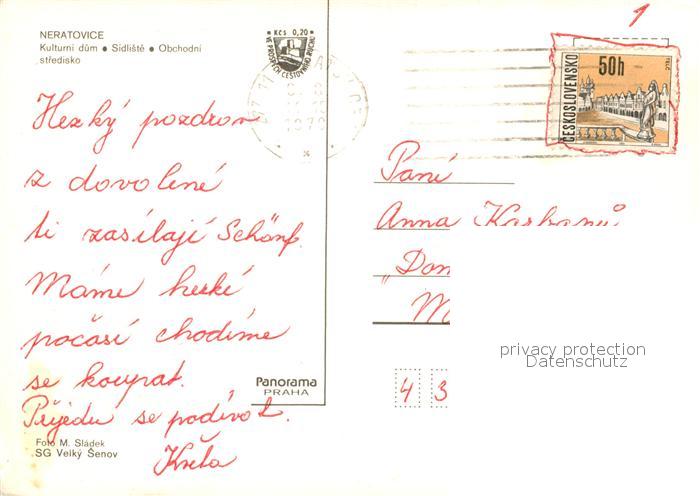 NERATOVICE
Kulturní dům • Sídliště • Obchodní
středisko
Kčs 0,20
VE PROSPĚCH CESTOVNÍHO RUCHU
ČESKOSLOVENSKO
50h
TELČ
1
Hezký pozdrav
z dovolené
ti zasílají Schönf.
Máme hezké
počasí chodíme
se koupat.
Přijedu se podívat.
Květa
Paní
Anna
"Dom
M
4 3
Panorama
PRAHA
Foto M. Sládek
SG Velký Šenov
privacy protection
Datenschutz